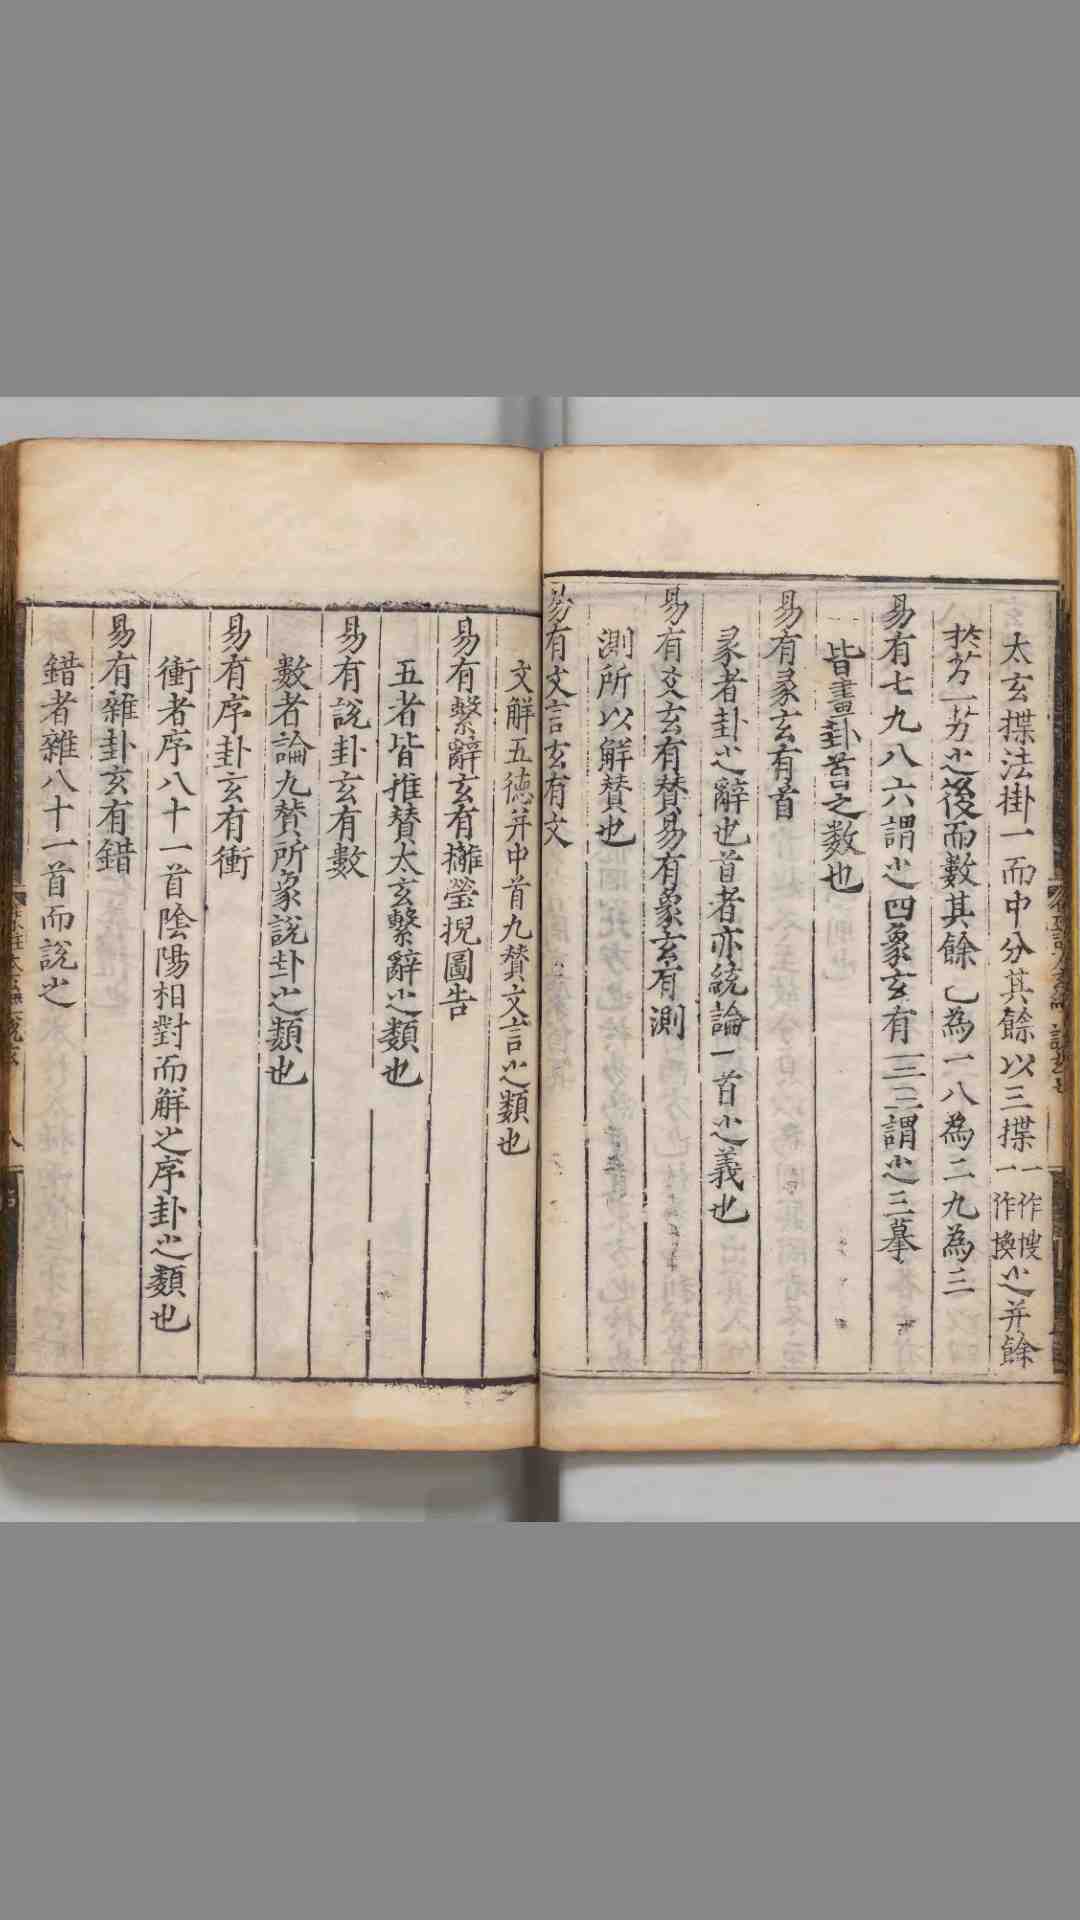 太玄揲法掛一而中分其餘以三揲一作㮴一作換之并餘
於艻一艻之後而數其餘七為一八為二九為三
易有七九八六謂之四象玄有一二三謂之三摹
皆畫卦首之數也
易有彖玄有首
彖者卦之辭也首者亦統論一首之義也
易有爻玄有贊易有象玄有測
測所以解贊也
易有文言玄有文
文解五德并中首九贊文言之類也
易有繫辭玄有攡瑩掜圖告
五者皆推贊太玄繫辭之類也
易有說卦玄有數
數者論九贊所象說卦之類也
易有序卦玄有衝
衝者序八十一首陰陽相對而解之序卦之類也
易有雜卦玄有錯
錯者雜八十一首而說之